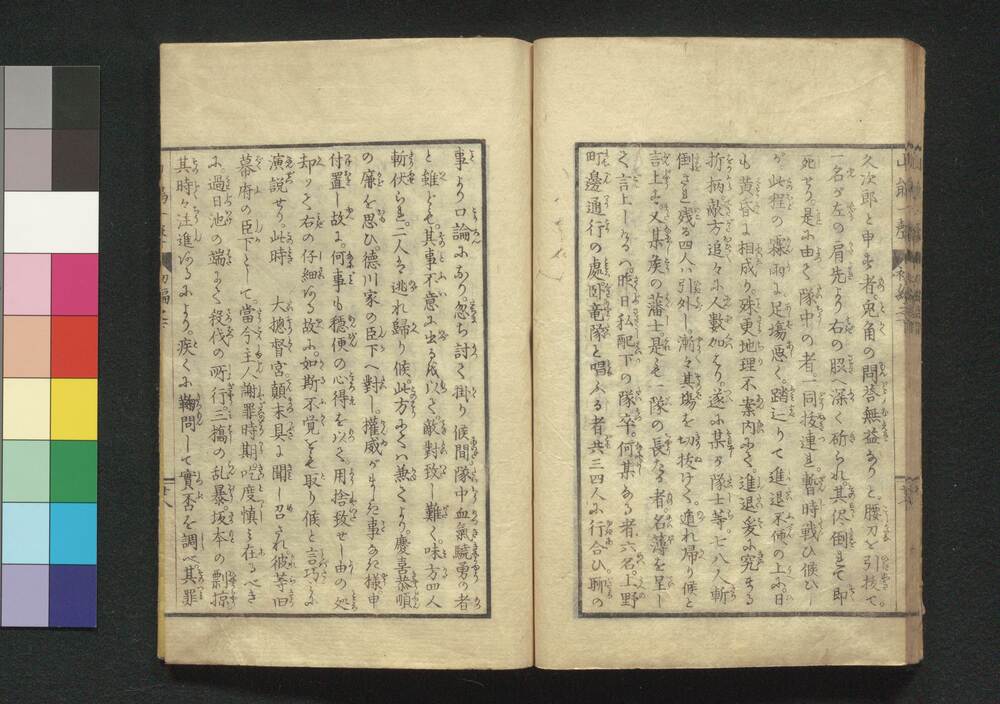 久次郎と申す者。兎角の問答無益なりと。腰刀を引抜て。
一名が左の肩先より右の脇へ深く斫られ。其侭倒れて即
死せり。是に由て隊中の者一同抜連れ。暫時戦ひ候ひし
が此程の霖雨に足場悪く。踏辷りて進退不便の上に。日
も黄昏に相成り。殊更地理不案内にて。進退爰に究まる
折柄敵方追々に人数加はり。遂に某が隊士等。七八人斬
倒され残る四人ハ引外し。漸々其場を切抜けて。遁れ帰り候と
言上に又某侯の藩士是も一隊の長たる者。名簿を呈し
て言上しけるハ。昨日私配下の隊卒。何某ある者六名。上野
町邊通行の處。卧竜隊と唱ふる者共三四人に行合ひ。聊の
事より口論になり忽ち討て掛り候間隊中血氣驍勇の者
と雖ども。其事不意に出るを以て。敵對致し難く。味方四人
斬伏られ。二人は逃れ歸り候。此方にては兼てより。慶喜恭順
の廉を思ひ。徳川家の臣下へ對し。権威がましき事なき様。申
付置し故に。何事も穏便の心得を以て用捨致せし由の処
却って右の仔細ある故に。如斯不覚をも取り候と言巧みに
演説せり。此時　大摠督宮顛末具に聞し召され彼等旧
幕府の臣下として。當今主人謝罪時期。屹度慎み在るべき
に過日池の端にて殺伐の所行。三橋の乱暴。坂本の剽掠
其時々注進あるにより。疾くに鞠問して實否を調べ。其罪